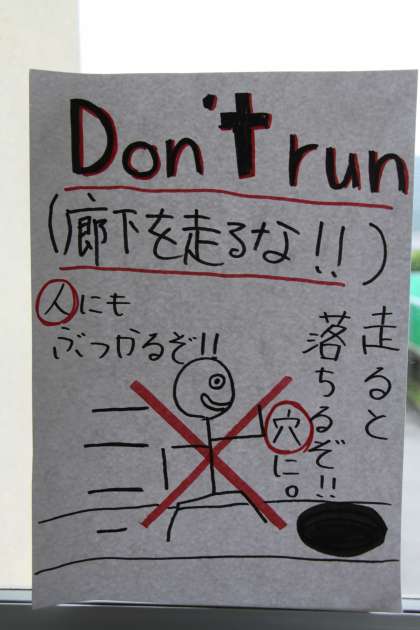 Don't run
(廊下を走るな!!)
人にも
ぶつかるぞ!!
走ると
落ちるぞ!!
穴に。